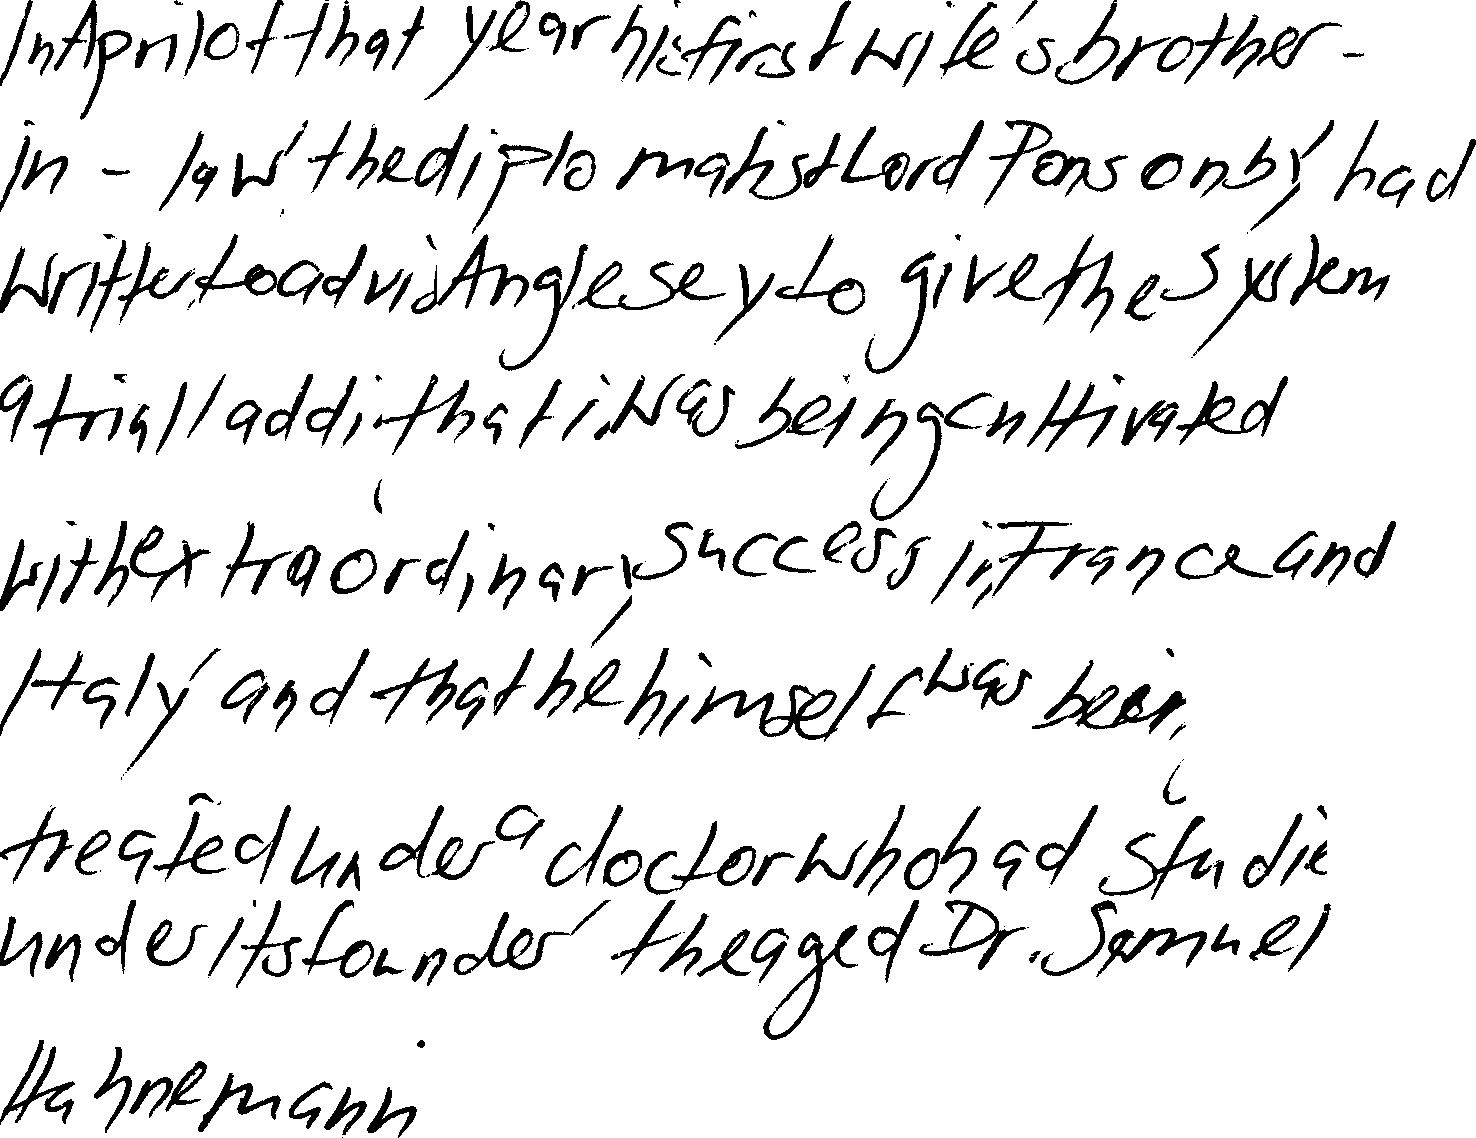 In April of that year his first wife's brother-
in-law, the diplomatist Lord Ponsonby, had
written to advis Anglesey to give the system
a trial, addi that it was being cultivated
with extraordinary success in France and
Italy, and that he himself was being
treated under a doctor who had studie
under its founder, the aged Dr. Samuel
Hahnemann.